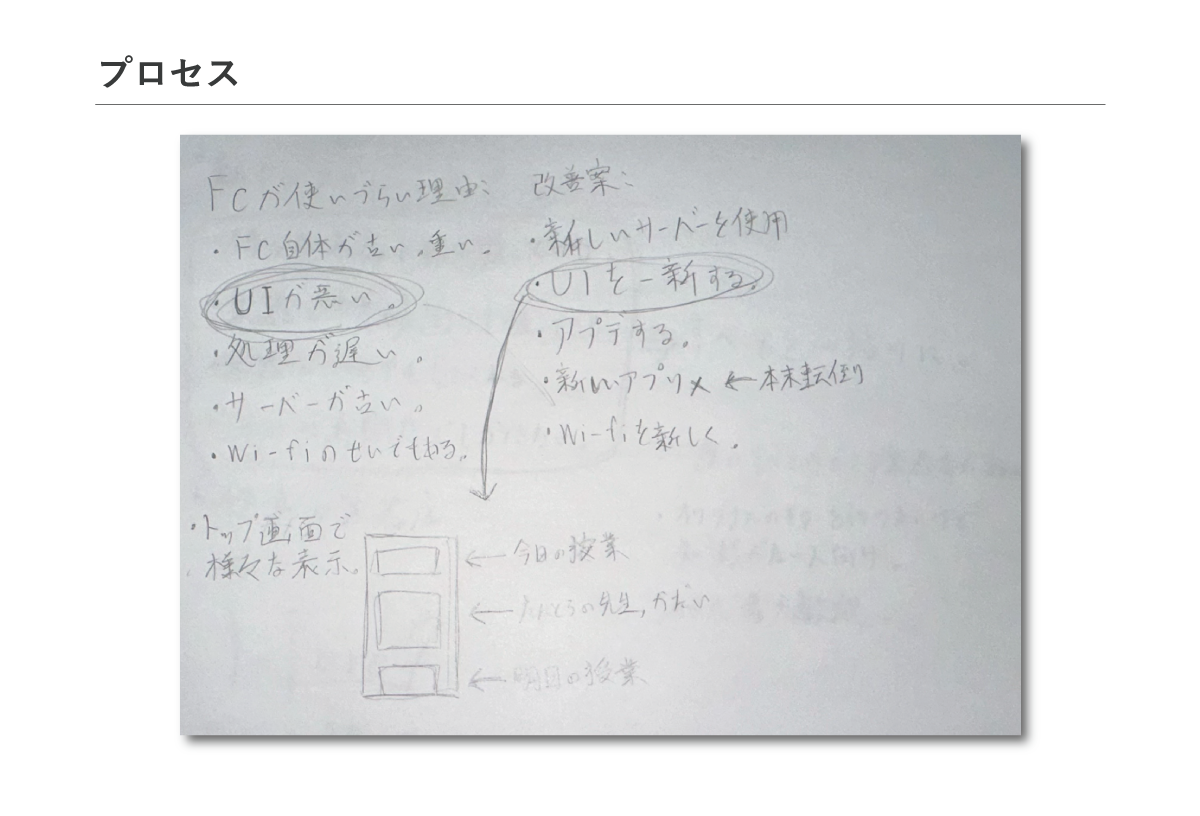 プロセス
FCが使いづらい理由:
・FC自体が古い。重い。
・UIが悪い。
・処理が遅い。
・サーバーが古い。
・Wi-fiのせいでもある。
改善案:
・新しいサーバーを使用
・UIを一新する。
・アプデする。
・新しいアプリ× ←本末転倒
・Wi-fiを新しく。
・トップ画面で
様々な表示。
←今日の授業
←たんとうの先生,かだい
←明日の授業